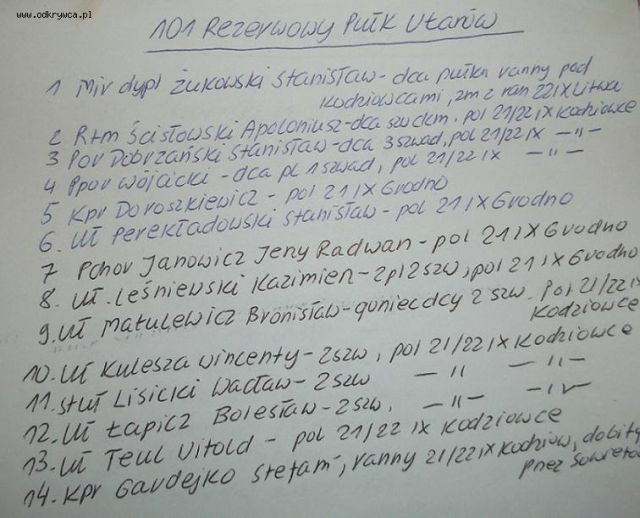 www.odkrywca.pl
101 Rezerwowy Pułk Ułanów
1 Mjr dypl Żukowski Stanisław - dca pułku ranny pod
Kodziowcami, zm z ran 22 IX Litwa
2 Rtm Ścisłowski Apoloniusz - dca szw ckm. pol 21/22 IX Kodziowce
3 Por Dobrzański Stanisław - dca 3 szwad, pol 21/22 IX — " —
4 Ppor Wójcicki - dca pl 1 szwad, pol 21/22 IX — " —
5 Kpr Doroszkiewicz - pol 21 IX Grodno
6. Uł Perekładowski Stanisław - pol 21 IX Grodno
7 Pchor Janowicz Jerzy Radwan - pol 21 IX Grodno
8. Uł. Leśniewski Kazimierz - 2 pl 2 szw, pol 21 IX Grodno
9. Uł Matulewicz Bronisław - goniec dcy 2 szw. pol 21/22 IX
Kodziowce
10. Uł Kulesza Wincenty - 2 szw, pol 21/22 IX Kodziowce
11. St uł Lisicki Wacław - 2 szw — " —
12. Uł Łapicz Bolesław - 2 szw, — " — — " —
13. Uł Teul Vitold - pol 21/22 IX Kodziowce
14. Kpr Gawdejko Stefan, ranny 21/22 IX Kodziow, dobity
przez Sowietów